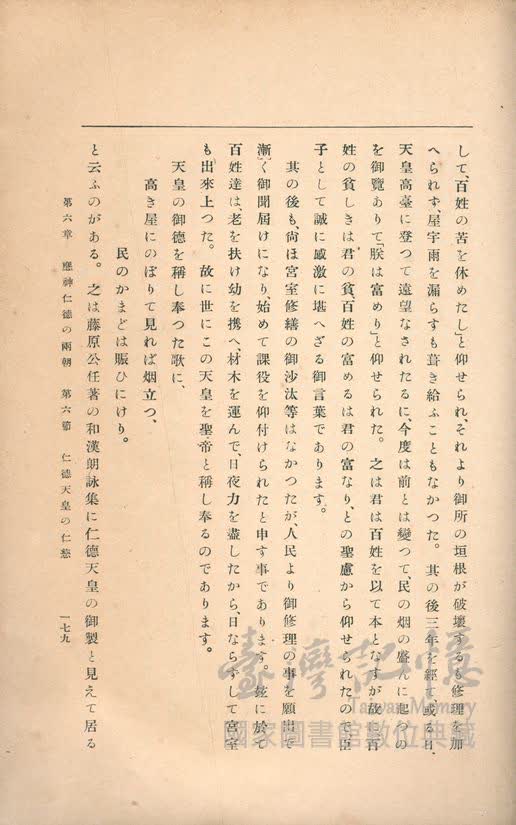 して、百姓の苦を休めたし」と仰せられ、それより御所の垣根が破壞するも修理を加
へられず、屋宇雨を漏らすも葺き給ふこともなかつた。其の後三年を經て或る日、
天皇高臺に登つて遠望なされたるに、今度は前とは變つて、民の烟の盛んに起つの
を御覽ありて「朕は富めり」と仰せられた。之は君は百姓を以て本となすが故、百
姓の貧しきは君の貧、百姓の富めるは君の富なり、との聖慮から仰せられたので、臣
子として誠に感激に堪へざる御言葉であります。
其の後も、尙ほ宮室修繕の御沙汰等はなかつたが、人民より御修理の事を願出で
漸く御聞屆けになり、始めて課役を仰付けられたと申す事であります。玆に於て
百姓達は、老を扶け幼を携へ、材木を運んで、日夜力を盡したから、日ならずして宮室
も出來上つた。故に世にこの天皇を聖帝と稱し奉るのであります。
天皇の御德を稱し奉つた歌に、
高き屋にのぼりて見れば烟立つ、
民のかまどは賑ひにけり。
と云ふのがある。之は藤原公任著の和漢朗詠集に仁德天皇の御製と見えて居る
第六章 應神仁德の兩朝 第六節 仁德天皇の仁慈 一七九
臺灣記憶
Taiwan Memory
國家圖書館數位典藏